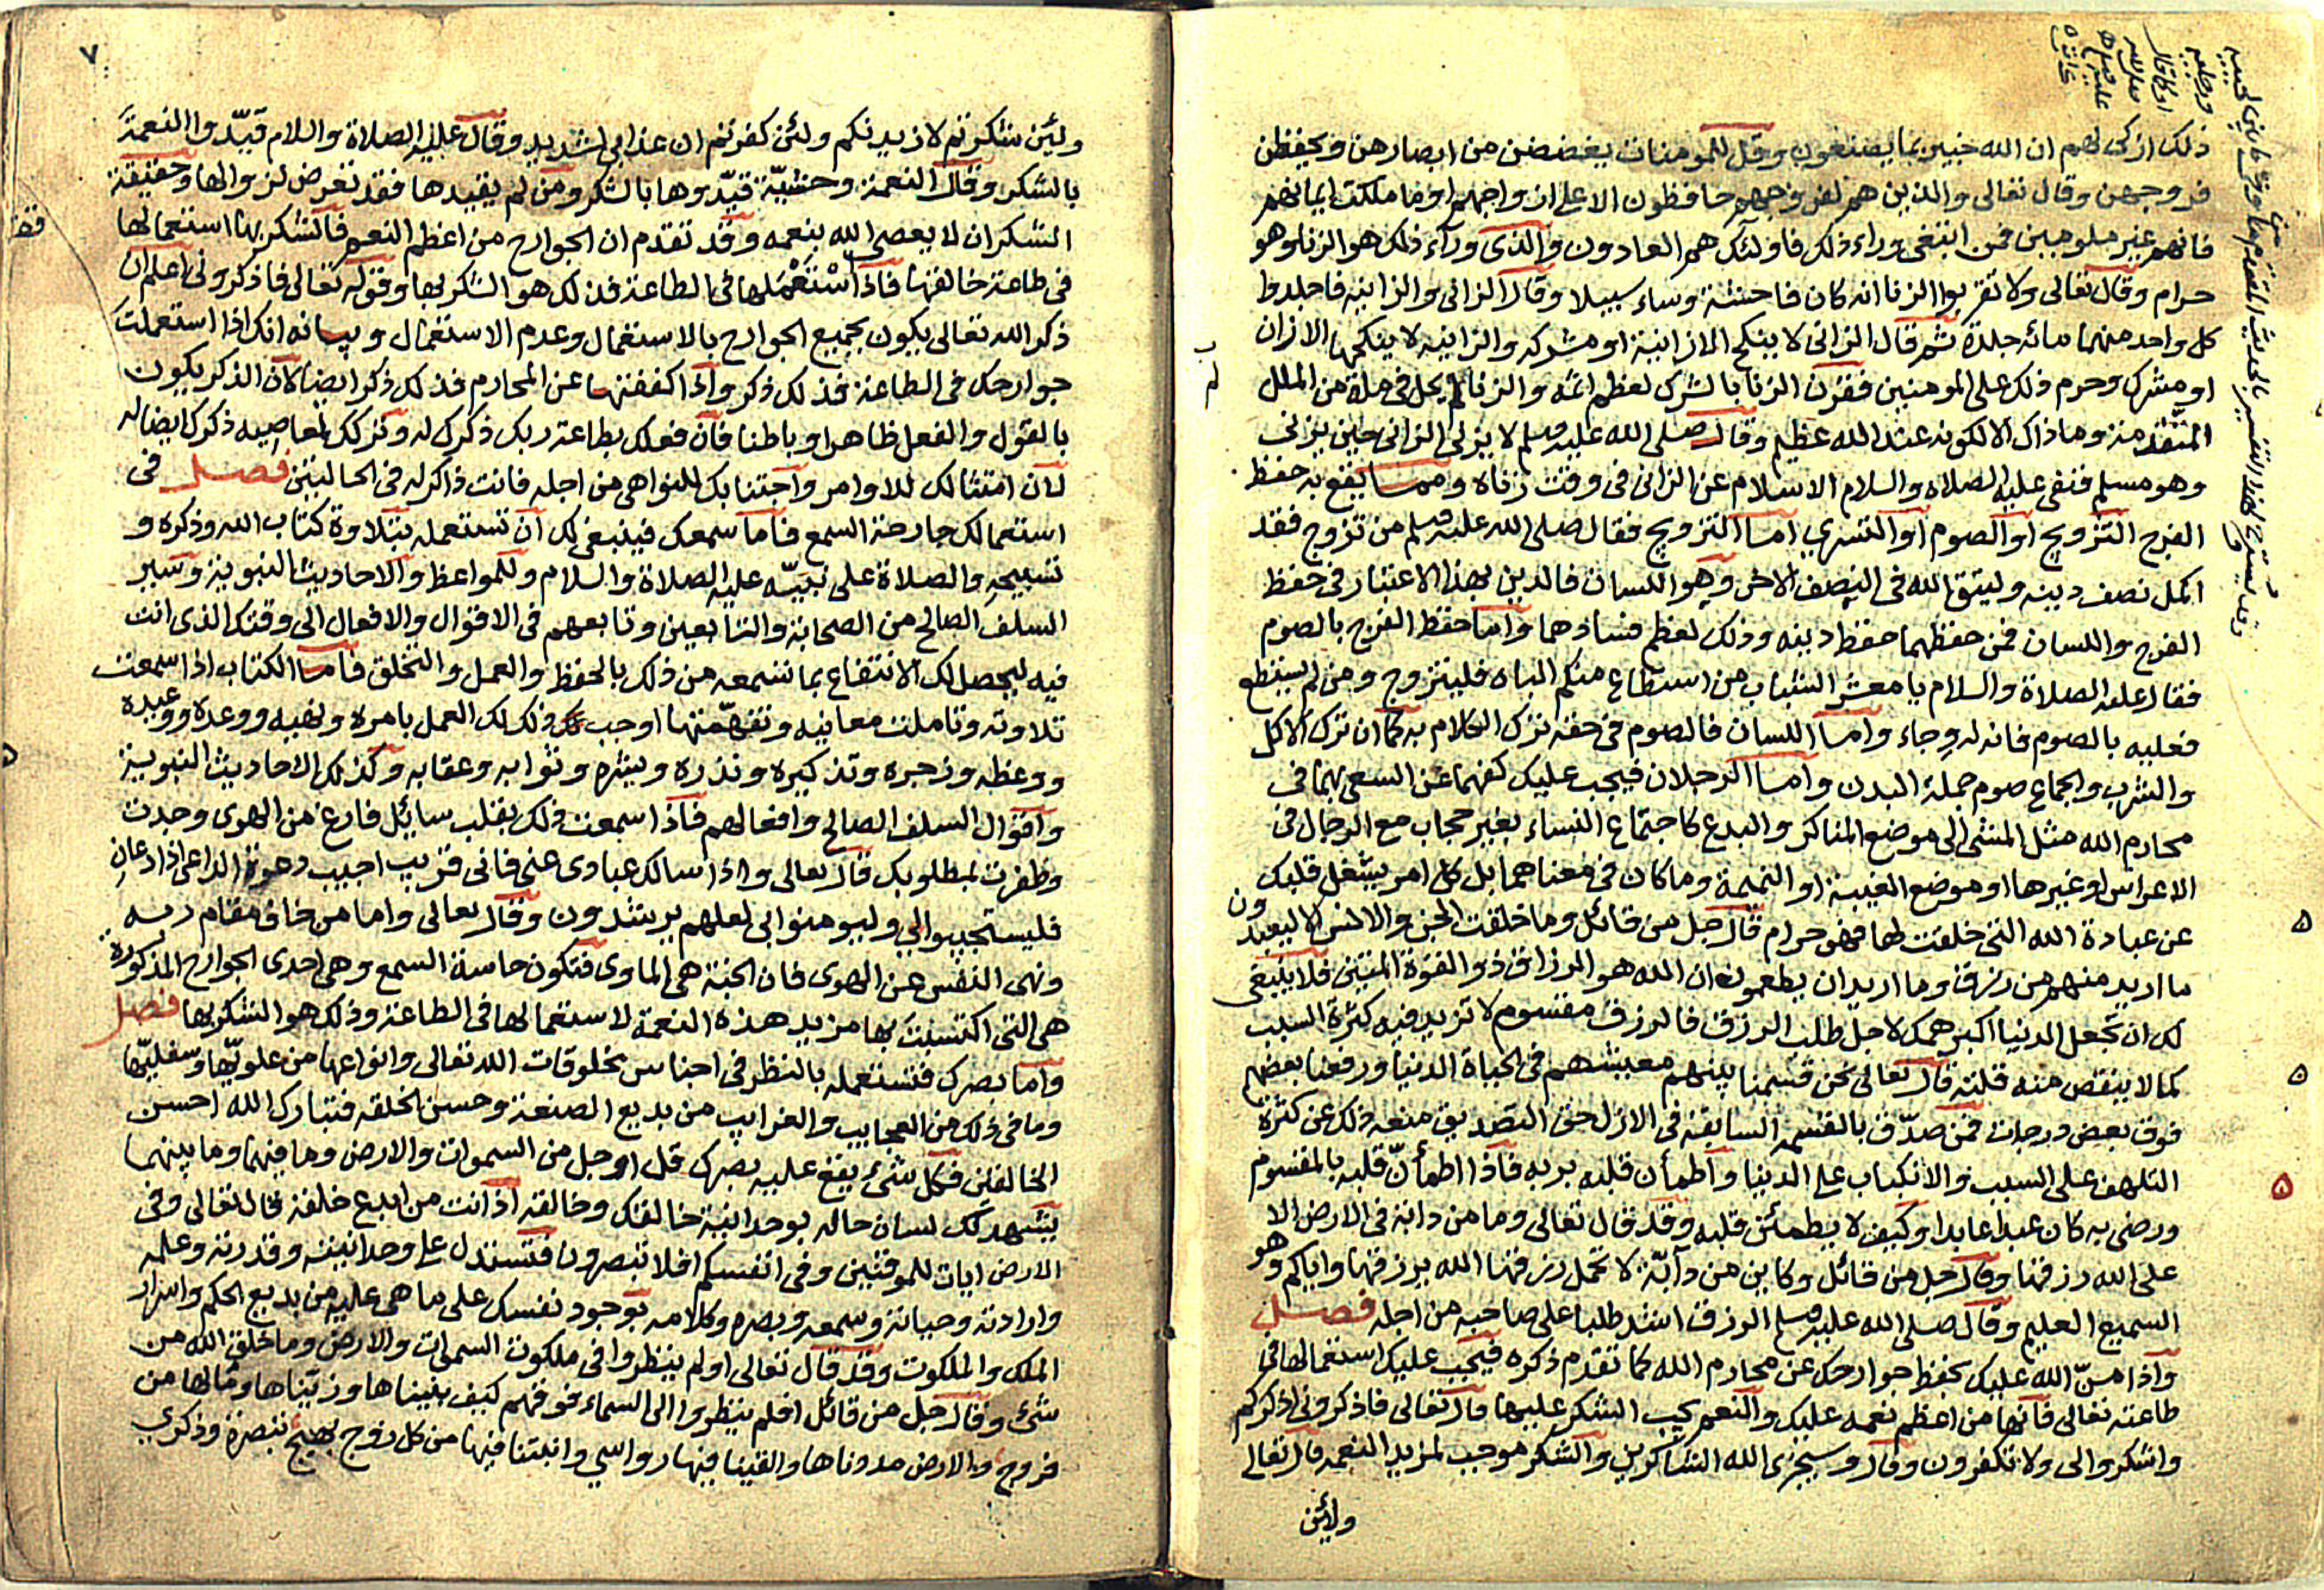 ذلك ازكى لهم ان الله خبير بما يصنعون وقل للمومنات يغضضن من ابصارهن ويحفظن
فروجهن وقال تعالى والذين هم لفروجهم حافظون الا على ازواجهم او ما ملكت ايمانهم
فانهم غير ملومين فمن ابتغى وراء ذلك فاولئك هم العادون والذى ورآء ذلك هو الزنا وهو
حرام وقال تعالى ولا تقربوا الزنا انه كان فاحشة وساء سبيلا وقال الزانى والزانيه فاجلدوا
كل واحد منهما مائه جلدة ثم قال الزانى لا ينكح الا زانية او مشركه والزانيه لا ينكحها الا زان
او مشرك وحرم ذلك على المومنين فقرن الزنا بالشرك لعظم اثمه والزنا لم يحل فى ملة من الملل
المتقدمة وما ذاك الا لكونه عند الله عظيم وقال صلى الله عليه وسلم لا يزنى الزانى حين يزنى
وهو مسلم فنفى عليه الصلاة والسلام الاسلام عن الزانى فى وقت زناه ومما يقع به حفظ
الفرج التزويج او الصوم او التسري اما التزويج فقال صلى الله عليه وسلم من تزوج فقد
اكمل نصف دينه وليتق الله فى النصف الاخر وهو اللسان فالدين بهذا الاعتبار فى حفظ
الفرج واللسان فمن حفظهما حفظ دينه وذلك لعظم فسادهما واما حفظ الفرج بالصوم
فقال عليه الصلاة والسلام يا معشر الشباب من استطاع منكم الباه فليتزوج ومن لم يستطع
فعليه بالصوم فانه له وجاء واما اللسان فالصوم فى حقه ترك الكلام به كما ان ترك الاكل
والشرب والجماع صوم جملة البدن واما الرجلان فيجب عليك كفهما عن السعى بهما فى
محارم الله مثل المشى الى موضع المناكر والبدع كاجتماع النساء بغير حجاب مع الرجال فى
الاعراس او غيرها او موضع الغيبة او النميمة وما كان فى معناهما بل كل امر يشغل قلبك
عن عبادة الله التى خلقت لها فهو حرام قال جل من قائل وما خلقت الجن والانس الا ليعبدون
ما اريد منهم من رزق وما اريد ان يطعمون ان الله هو الرزاق ذو القوة المتين فلا ينبغى
لك ان تجعل الدنيا اكبر همك لاجل طلب الرزق فالرزق مقسوم لا تزيد فيه كثرة السبب
كما لا ينقص منه قلته قال تعالى نحن قسمنا بينهم معيشتهم فى الحياة الدنيا ورفعنا بعضهم
فوق بعض درجات فمن صدّق بالقسمة السابقة فى الازل حق التصديق منعه ذلك عن كثرة
التلهف على السبب والانكباب على الدنيا واطمأن قلبه بربه فاذا اطمأنّ قلبه بالمقسوم
ورضى به كان عبدا عابدا وكيف لا يطمئن قلبه وقد قال تعالى وما من دابة فى الارض الا
على الله رزقها وقال جل من قائل وكاين من دآبّة لا تحمل رزقها الله يرزقها واياكم وهو
السميع العليم وقال صلى الله عليه وسلم الرزق اشد طلبا على صاحبه من اجله فصل
واذا منّ الله عليك بحفظ جوارحك عن محارم الله كما تقدم ذكره فيجب عليك استعمالها فى
طاعته تعالى فانها من اعظم نعمه عليك والنعم يجب الشكر عليها قال تعالى فاذكرونى اذكركم
واشكروا لى ولا تكفرون وقال وسيجزى الله الشاكرين والشكر موجب لمزيد النعمه قال تعالى
ولئن
٧
ولئن شكرتم لازيدنكم ولئن كفرتم ان عذابى لشديد وقال عليه الصلاة والسلام قيّدوا النعمة
بالشكر وقال النعمة وحشيّة قيّدوها بالشكر ومن لم يقيدها فقد تعرض لزوالها وحقيقة
الشكر ان لا يعصى الله بنعمه وقد تقدم ان الجوارح من اعظم النعم فالشكر بها استعمالها
فى طاعة خالقها فاذا اسْتَعْمَلها فى الطاعة فذلك هو الشكر بها وقوله تعالى فاذكرونى اعلم ان
ذكر الله تعالى يكون بجميع الجوارح بالاستعمال وعدم الاستعمال وبيانه انك اذا استعملت
جوارحك فى الطاعة فذلك ذكر واذا كففتها عن المحارم فذلك ذكر ايضا لان الذكر يكون
بالقول والفعل ظاهرا وباطنا فان فعلك بطاعة ربك ذكرك له وتركك لمعاصيه ذكرك ايضا له
لان امتثالك للاوامر واجتنابك للنواهى من اجله فانت ذاكر له فى الحالتين فصل فى
استعمالك جارحة السمع فاما سمعك فينبغى لك ان تستعمله بتلاوة كتاب الله وذكره و
تسبيحه والصلاة على نبيّه عليه الصلاة والسلام وللمواعظ والاحاديث النبوية وسير
السلف الصالح من الصحابة والتابعين وتابعهم فى الاقوال والافعال الى وقتك الذى انت
فيه ليحصل لك الانتفاع بما تسمعه من ذلك بالحفظ والعمل والتخلق فاما الكتاب اذا سمعت
تلاوته وتاملت معانيه وتفهّمتها اوجب ذلك لك العمل بامره ونهيه ووعده ووعيده
ووعظه وزجره وتذكيره ونذره وبشره وثوابه وعقابه وكذلك الاحاديث النبوية
واقوال السلف الصالح وافعالهم فاذا سمعت ذلك بقلب سائل فارغ من الهوى وجدت
وظفرت بمطلوبك قال تعالى واذا سالك عبادى عنى فانى قريب اجيب دعوة الداعى اذا دعانِ
فليستجيبوا لي وليومنوا بى لعلهم يرشدون وقال تعالى واما من خاف مقام ربه
ونهى النفس عن الهوى فان الجنة هى الماوى فتكون حاسة السمع وهى احدى الجوارح المذكورة
هى التى اكتسبتَ بها مزيد هذه النعمة لاستعمالها فى الطاعة وذلك هو الشكر بها فصل
واما بصرك فتستعمله بالنظر فى اجناس مخلوقات الله تعالى وانواعها من علويّها وسفليّها
وما فى ذلك من العجايب والغرايب من بديع الصنعة وحسن الخلقه فتبارك الله احسن
الخالقين فكل شىء يقع عليه بصرك قل او جل من السموات والارض وما فيهما وما بينهما
يشهد لك لسان حاله بوحدانية خالقك وخالقه اذ انت من ابدع خلقه قال تعالى وفى
الارض ايات للموقنين وفى انفسكم افلا تبصرون فتستدل على وحدانيته وقدرته وعلمه
وارادته وحياته وسمعه وبصره وكلامه بوجود نفسك على ما هى عليه من بديع الحكم واسرار
الملك والملكوت وقد قال تعالى اولم ينظروا فى ملكوت السموات والارض وما خلق الله من
شىء وقال جل من قائل افلم ينظروا الى السماء فوقهم كيف بنيناها وزيّناها وما لها من
فروج والارض مددناها والقينا فيها رواسي وانبتنا فيها من كل زوج بهيج تبصرة وذكرى